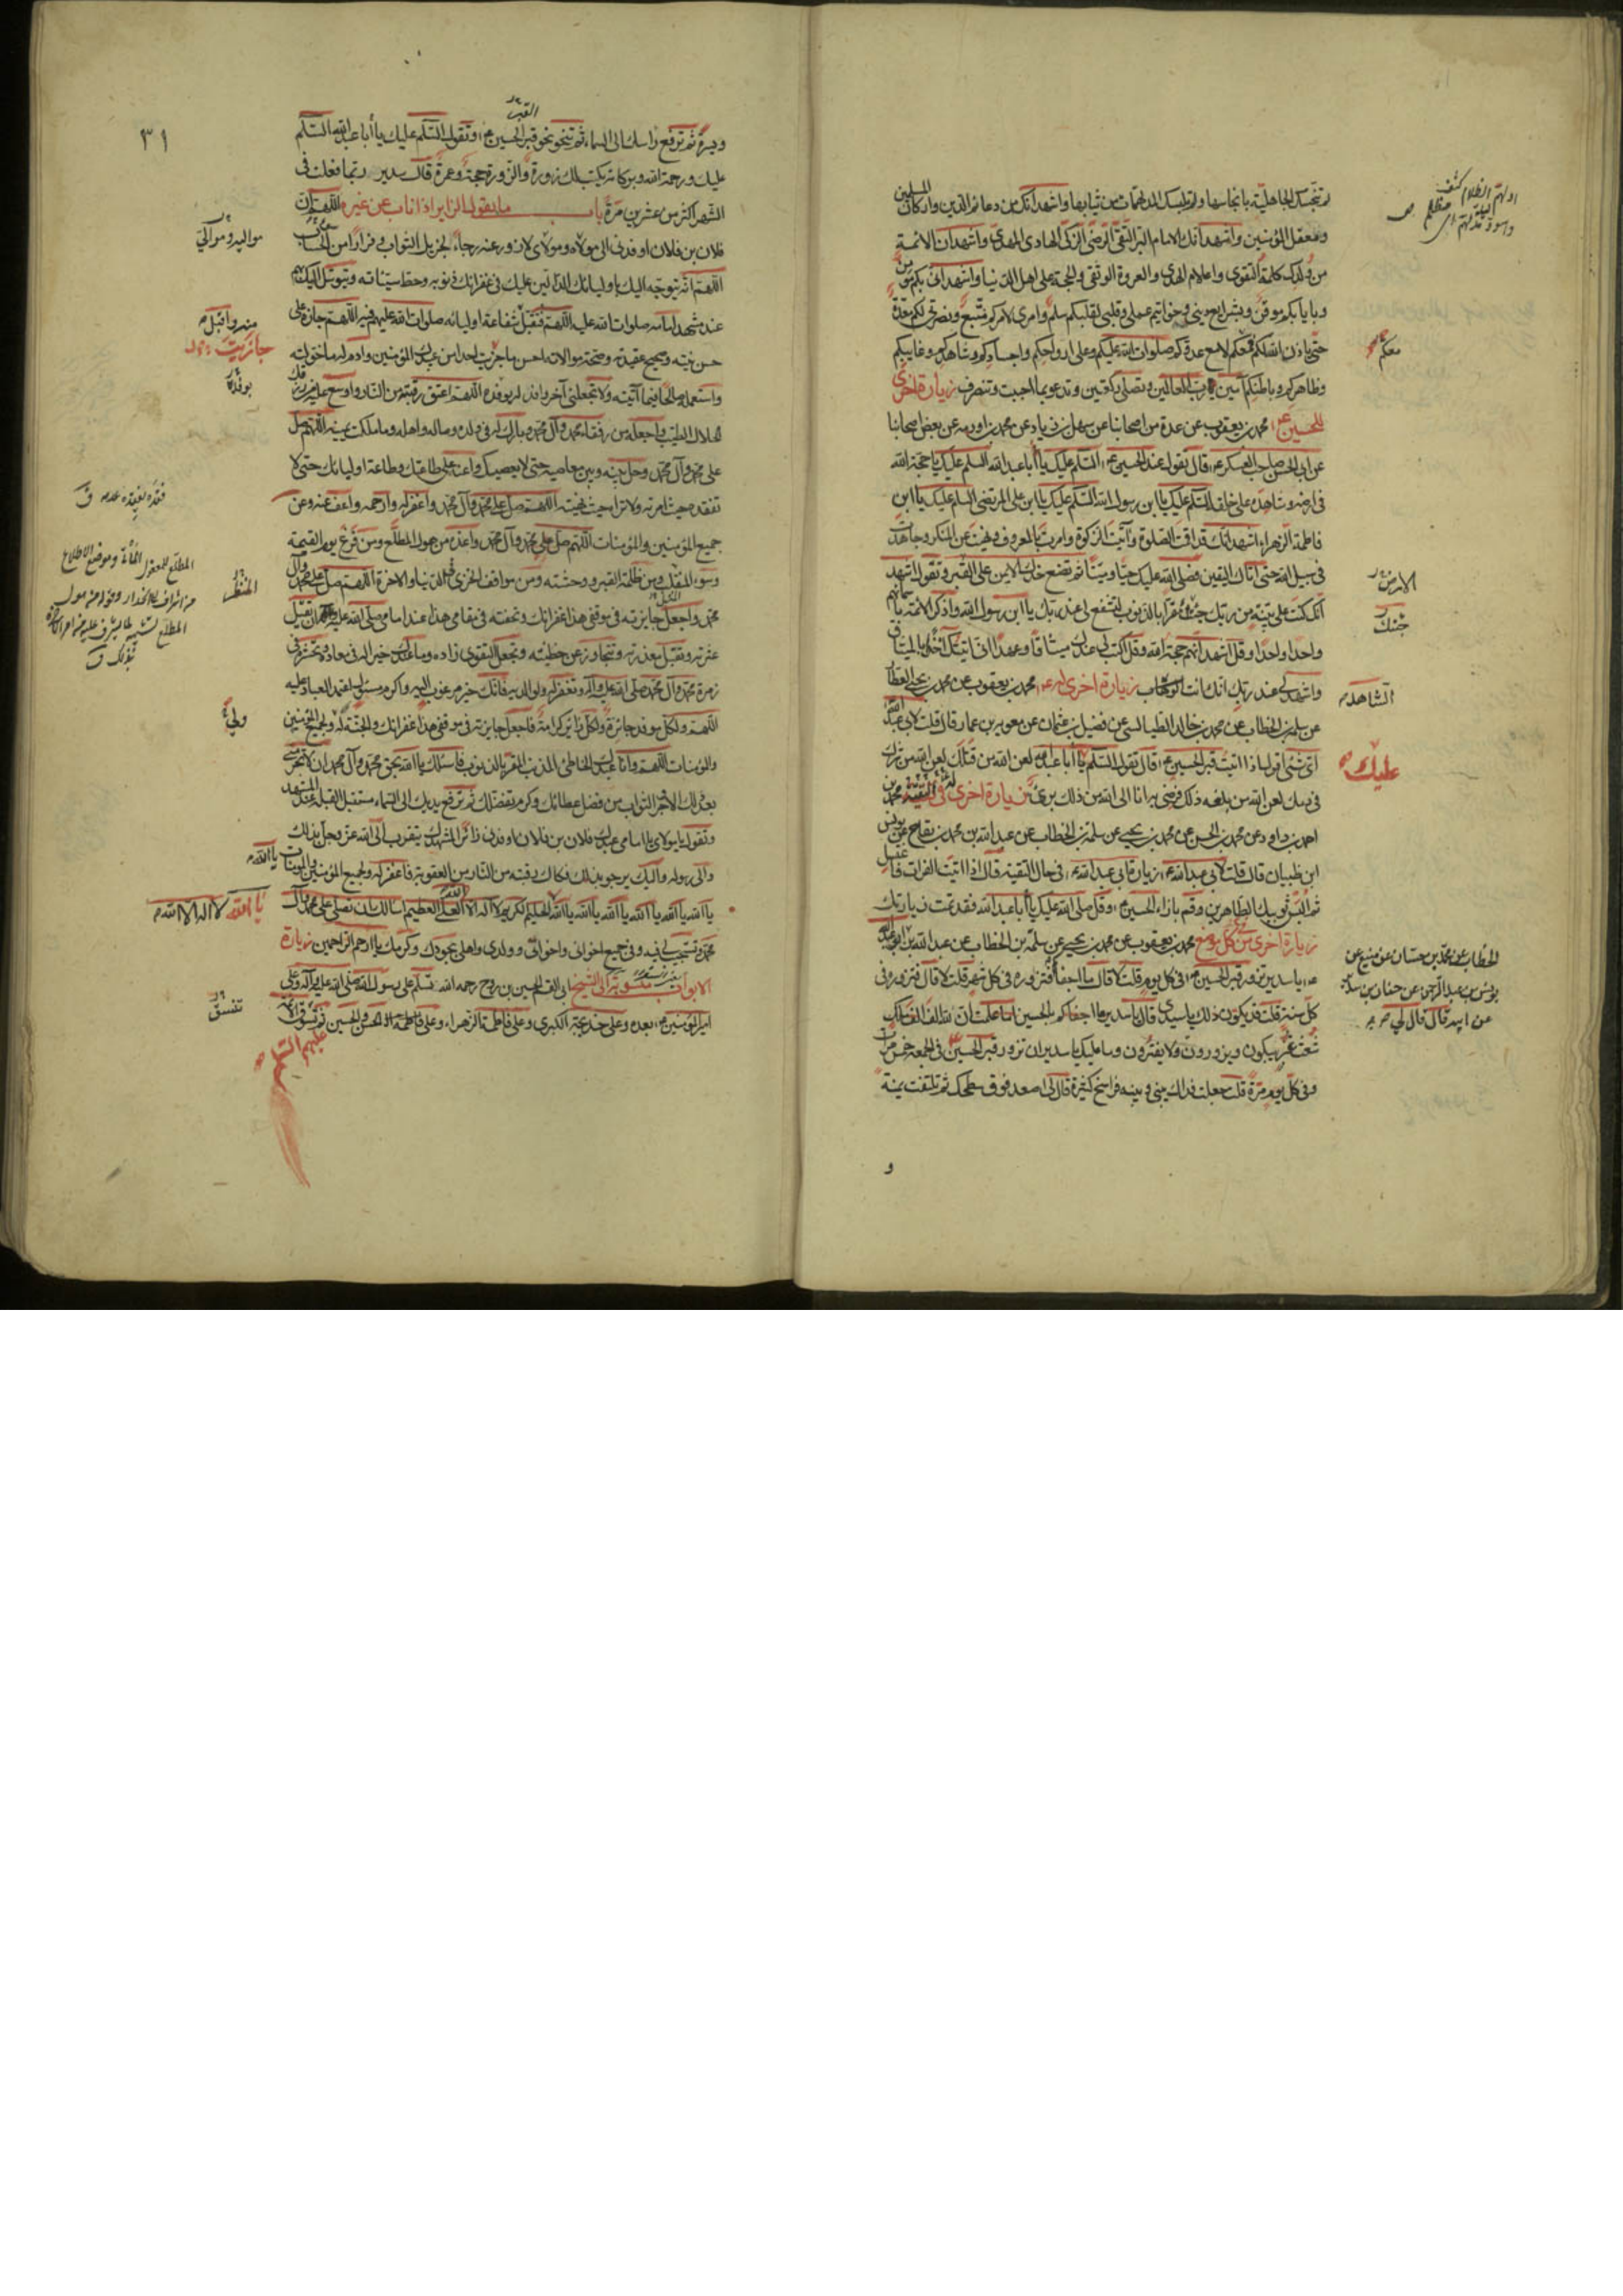 لم تنجسك الجاهلية بانجاسها ولم تلبسك المدلهمات من ثيابها واشهد انك من دعائم الدين واركان المسلمين
ومعقل المؤمنين واشهد انك الامام البر التقي الرضي الزكي الهادي المهدي واشهد ان الائمة
من ولدك كلمة التقوى واعلام الهدى والعروة الوثقى والحجة على اهل الدنيا واشهد اني بكم مؤمن
وبايابكم موقن وبشرايع ديني وخواتيم عملي وقلبي لقلبكم سلم وامري لامركم متبع ونصرتي لكم معدة
حتى ياذن الله لكم فمعكم معكم لا مع عدوكم صلوات الله عليكم وعلى ارواحكم واجسادكم وشاهدكم وغايبكم
وظاهركم وباطنكم آمين رب العالمين وتصلي ركعتين وتدعو بما احببت وتنصرف زيارة اخرى
للحسين محمد بن يعقوب عن عدة من اصحابنا عن سهل بن زياد عن محمد بن اورمه عن بعض اصحابنا
عن ابي الحسن صاحب العسكر قال تقول عند الحسين السلم عليك يا أبا عبد الله السلم عليك يا حجة الله
في ارضه وشاهده على خلقه السلم عليك يا ابن رسول الله السلم عليك يا ابن علي المرتضى السلم عليك يا ابن
فاطمة الزهراء اشهد انك قد اقمت الصلوة وآتيت الزكوة وامرت بالمعروف ونهيت عن المنكر وجاهدت
في سبيل الله حتى اتاك اليقين فصلى الله عليك حيا وميتا ثم تضع خدك الايمن على القبر وتقول اشهد
انك كنت على بينة من ربك جئت مقرا بالذنوب لتشفع لي عند ربك يا ابن رسول الله واذكر الائمة باسمائهم
واحدا واحدا وقل اشهد انهم حجة الله وقل اكتب لي عندك ميثاقا وعهدا اني اتيتك
واشهد لي عند ربك انك انت الشاهد زيارة اخرى له محمد بن يعقوب عن محمد بن يحيى العطار
عن سلمة بن الخطاب عن محمد بن خالد الطيالسي عن فضيل بن عثمان عن معوية بن عمار قال قلت لابي عبد الله
اي شئ اقول اذا اتيت قبر الحسين قال تقول السلم عليك يا أبا عبد الله لعن الله من قتلك لعن الله من شرك
في دمك لعن الله من بلغه ذلك فرضي به انا الى الله من ذلك بريء زيارة اخرى في التقية محمد بن
احمد بن داود عن محمد بن الحسن عن محمد بن يحيى عن سلمة بن الخطاب عن عبد الله بن محمد بن بقاح عن يونس
ابن ظبيان قال قلت لابي عبد الله زيارة ابي عبد الله في حال التقية قال اذا اتيت الفرات فاغتسل
ثم البس ثوبيك الطاهرين وقم بازاء الحسين وقل صلى الله عليك يا أبا عبد الله فقد تمت زيارتك
زيارة اخرى من كل موضع محمد بن يعقوب عن محمد بن يحيى عن سلمة بن الخطاب عن عبد الله
يا سدير تزور قبر الحسين في كل يوم قلت لا قال ما اجفاكم فتزوره في كل شهر قلت لا قال فتزوره في
كل سنة قلت قد يكون ذلك يا سيدي قال يا سدير ما اجفاكم بالحسين اما علمت ان لله الف الف ملك
شعث غبر يبكون ويزورون ولا يفترون وما عليك يا سدير ان تزور قبر الحسين في الجمعة خمس مرات
وفي كل يوم مرة قلت جعلت فداك بيني وبينه فراسخ كثيرة قال لي اصعد فوق سطحك ثم تلتفت يمنة
و
معكم
الشاهد
عليك
الخطاب عن محمد بن حسان عن منيع عن
يونس بن عبد الرحمن عن حنان بن سدير
عن ابيه قال قال لي
٣١
ويسرة ثم ترفع راسك الى السماء ثم تنحو نحو قبر الحسين وتقول السلم عليك يا أبا عبد الله السلم
عليك ورحمة الله وبركاته يكتب لك زورة والزورة حجة وعمرة قال سدير ربما فعلت في
الشهر اكثر من عشرين مرة باب ما يقول الزاير اذا ناب عن غيره اللهم ان
فلان بن فلان اوفدني الى مولاه ومولاي لازور عنه رجاء لجزيل الثواب وفرارا من سوء الحساب
اللهم انه يتوجه اليك باوليائك الدالين عليك في غفرانك ذنوبه وحط سيئاته ويتوسل اليك بهم
عند مشهد امامه صلوات الله عليه اللهم فتقبل شفاعة اوليائه صلوات الله عليهم فيه اللهم جازه على
حسن نيته وصحيح عقيدته وصحة موالاته احسن ما جزيت احدا من عبيدك المؤمنين وادم له ما خولته
واستعمله صالحا فيما آتيته ولا تجعلني آخر وافد له يوفده اللهم اعتق رقبته من النار واوسع عليه من رزقك
الحلال الطيب واجعله من رفقاء محمد وآل محمد وبارك له في ولده وماله واهله وما ملكت يمينه اللهم صل
على محمد وآل محمد وحل بينه وبين معاصيه حتى لا يعصيك واعنه على طاعتك وطاعة اوليائك حتى لا
تفقده حيث امرته ولا تراه حيث نهيته اللهم صل على محمد وآل محمد واغفر له وارحمه واعف عنه وعن
جميع المؤمنين والمؤمنات اللهم صل على محمد وآل محمد واعذه من هول المطلع ومن فزع يوم القيمة
وسوء المنقلب ومن ظلمة القبر ووحشته ومن مواقف الخزي في الدنيا والاخرة اللهم صل على محمد وآل
محمد واجعل جايزته في موقفي هذا غفرانك وتحفته في مقامي هذا عند امامي صلى الله عليه ان تقيل
عثرته وتقبل معذرته وتتجاوز عن خطيئته وتجعل التقوى زاده وما عندك خيرا له في معاده وتحشره في
زمرة محمد وآل محمد صلى الله عليه وآله وتغفر له ولوالديه فانك خير مرغوب اليه واكرم مسئول اعتمد العباد عليه
اللهم ولكل موفد جائزة ولكل زائر كرامة فاجعل جايزته في موقفي هذا غفرانك والجنة له ولجميع المؤمنين
والمؤمنات اللهم وانا عبدك الخاطئ المذنب المقر بالذنوب فاسئلك يا الله بحق محمد وآل محمد ان لا تحرمني
بعد ذلك الاجر والثواب من فضل عطائك وكرم تفضلك ثم ترفع يديك الى السماء مستقبل القبلة عند المشهد
وتقول يا مولاي يا امامي عبدك فلان بن فلان اوفدني زائرا لمشهدك يتقرب الى الله عز وجل بذلك
والى رسوله واليك يرجو بذلك فكاك رقبته من النار من العقوبة فاغفر له ولجميع المؤمنين والمؤمنات يا الله
يا الله يا الله يا الله يا الله يا الله يا الله الحليم الكريم لا اله الا الله العلي العظيم اسالك ان تصلي على محمد وآل
محمد وتستجيب لي فيه وفي جميع اخواني واخواتي وولدي واهلي بجودك وكرمك يا ارحم الراحمين زيارة
الابواب منسوبة الى الشيخ ابي القسم الحسين بن روح رحمه الله تسلم على رسول الله صلى الله عليه وآله وعلى
امير المؤمنين بعده وعلى خديجة الكبرى وعلى فاطمة الزهراء وعلى الحسن والحسين ثم تسوق الائمة
عليهم السلم
يا الله لا اله الا الله